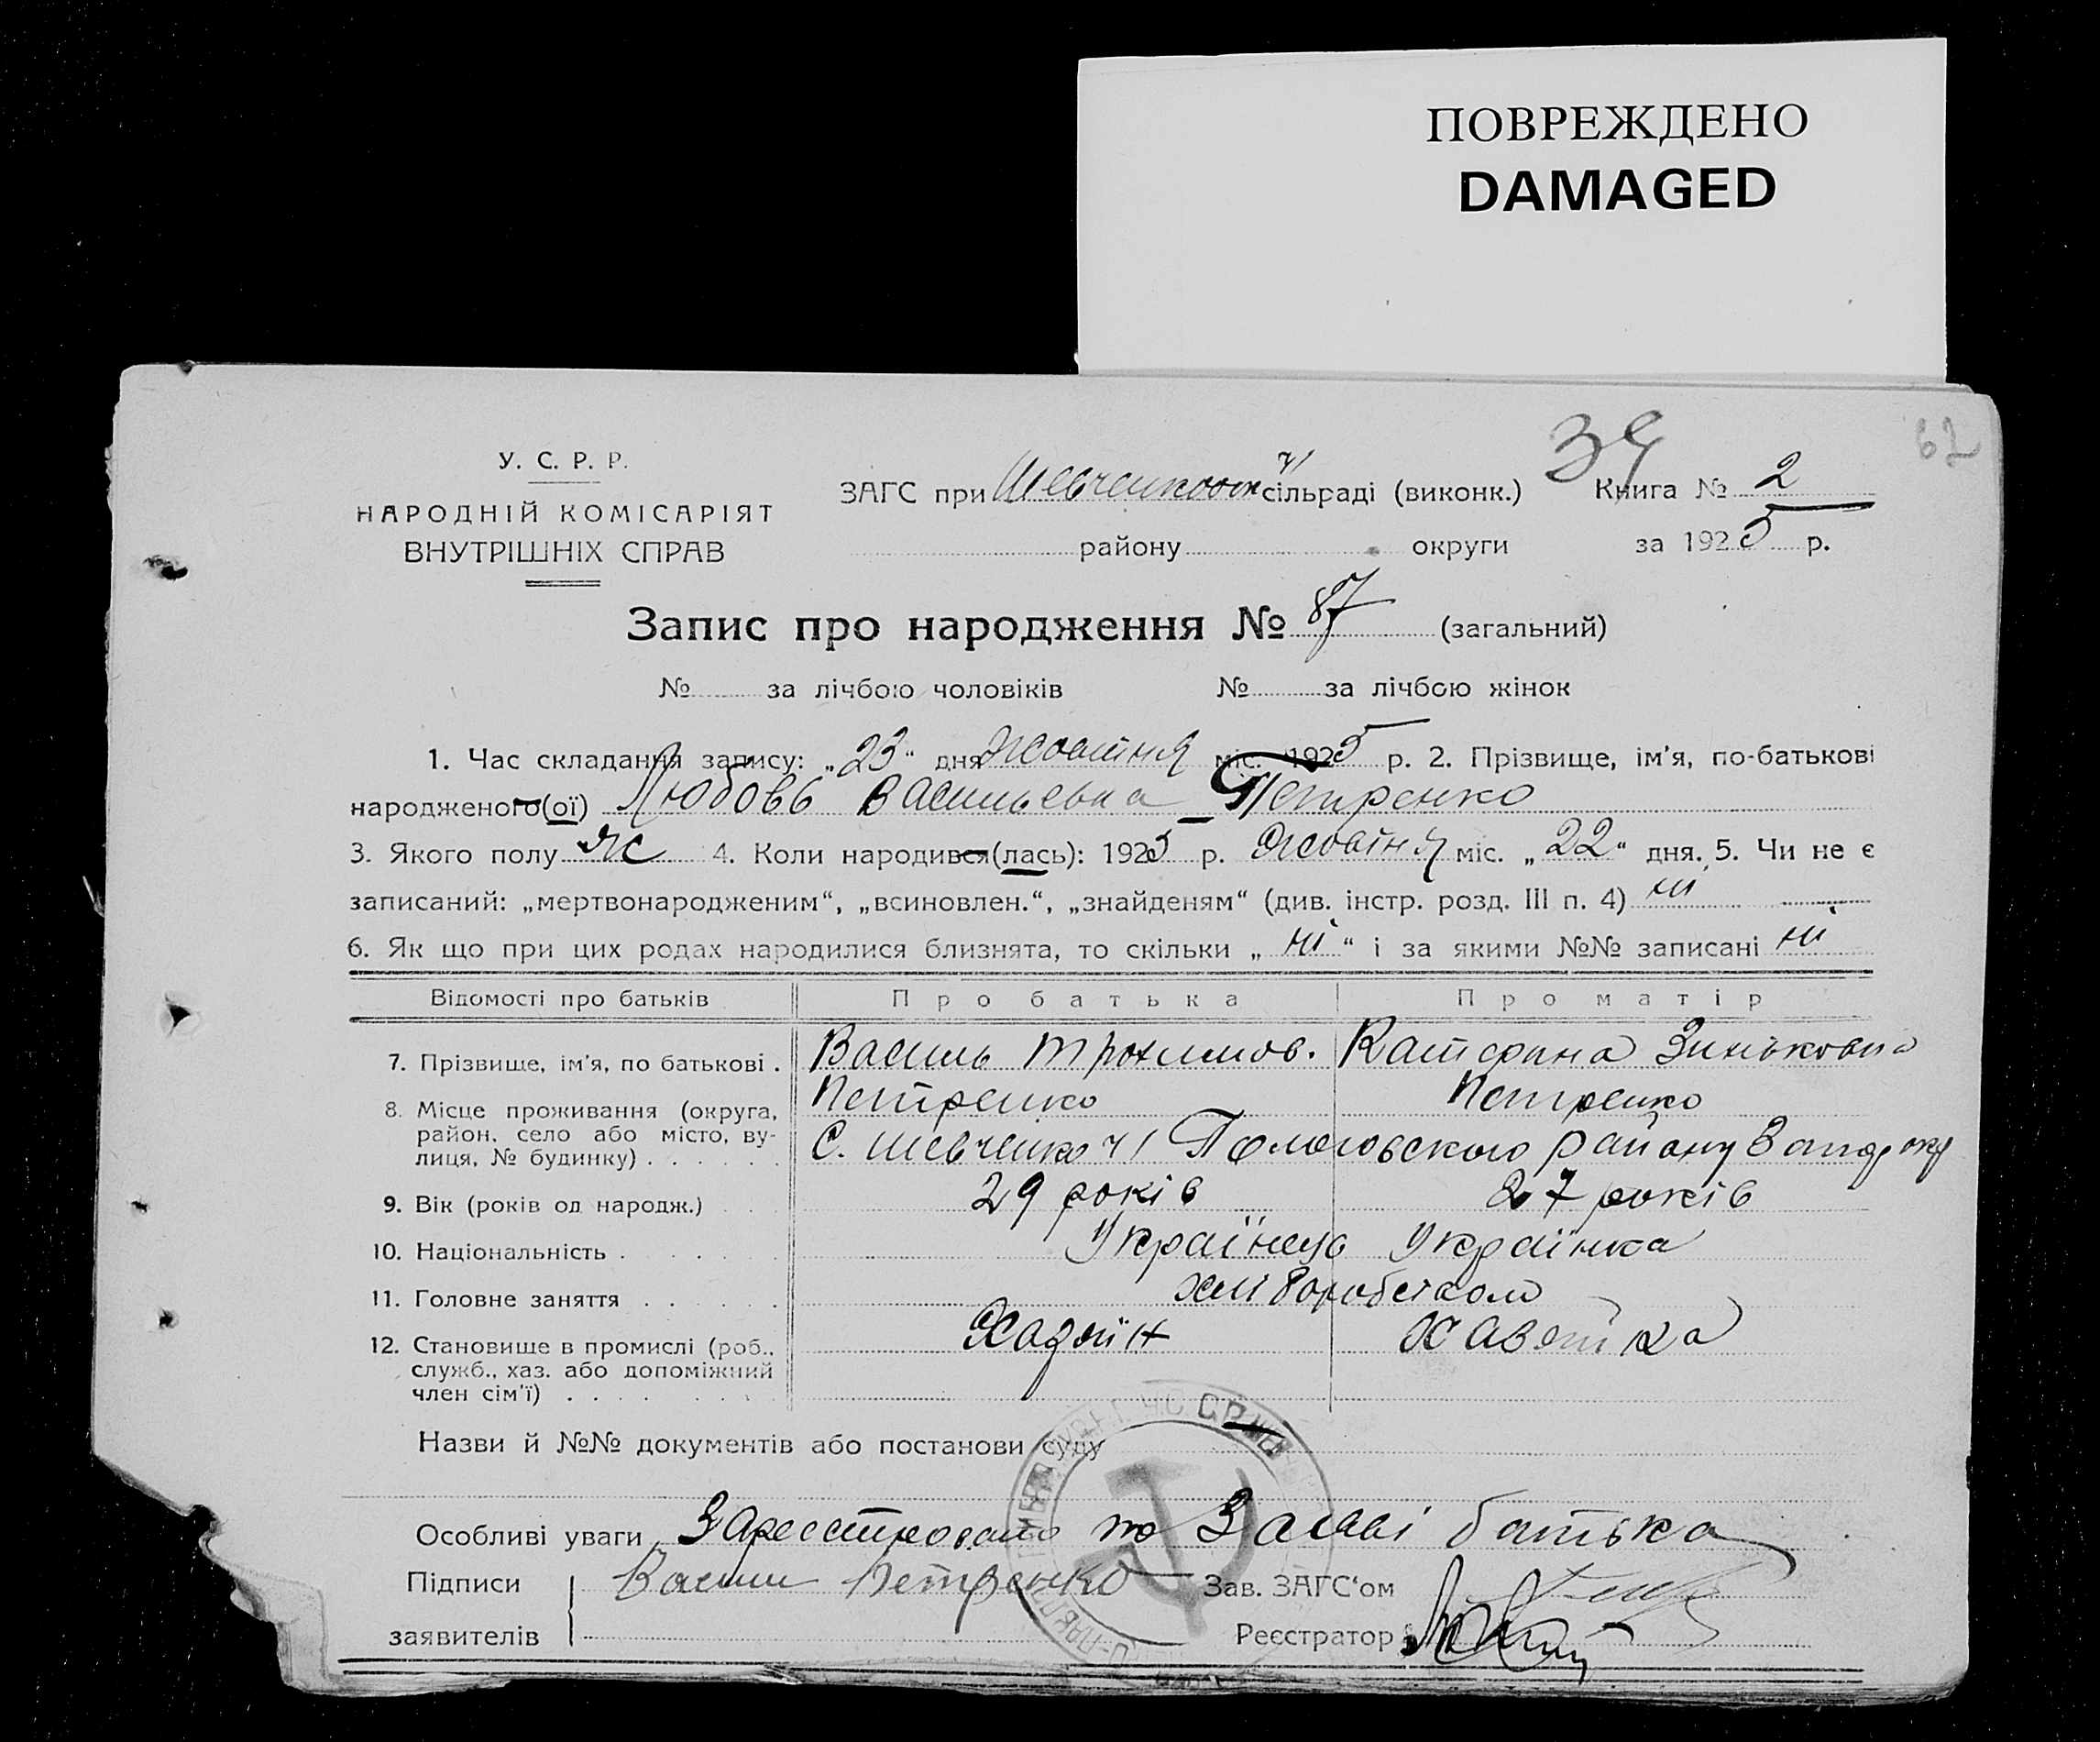 ПОВРЕЖДЕНО
DAMAGED
62
34
У. С. Р. Р.
НАРОДНІЙ КОМІСАРІЯТ
ВНУТРІШНІХ СПРАВ
ЗАГС при Шевченковск ч1 сільраді (виконк.) Книга № 2
району округи за 1925 р.
Запис про народження № 87 (загальний)
№ за лічбою чоловіків № за лічбою жінок
1. Час складання запису: „23“ дня жовтня міс. 1925 р. 2. Прізвище, ім'я, по-батькові
народженого(ої) Любовь Васильевна Петренко
3. Якого полу ж 4. Коли народився(лась): 1925 р. жовтня міс. „22“ дня. 5. Чи не є
записаний: „мертвонародженим“, „всиновлен.“, „знайденям“ (див. інстр. розд. III п. 4) ні
6. Як що при цих родах народилися близнята, то скільки „ні“ і за якими №№ записані ні
Відомості про батьків Про батька Про матір
7. Прізвище, ім'я, по батькові . Василь Трохимов. Катерина Зиньковна
Петренко Петренко
8. Місце проживання (округа,
район, село або місто, ву-
лиця, № будинку) . . . . . . С. Шевченко ч1 Пологовского району Запор окр
9. Вік (років од народж.) . . . 29 років 27 років
10. Національність . . . . . Українець Українка
11. Головне заняття . . . . . . хліборобством
12. Становище в промислі (роб.,
служб., хаз. або допоміжний
член сім'ї) . . . . . . Хазяїн Хазяйка
Назви й №№ документів або постанови суду
Особливі уваги Зареєстровано по Заяві батька
Підписи Василь Петренко Зав. ЗАГС'ом
заявителів Реєстратор